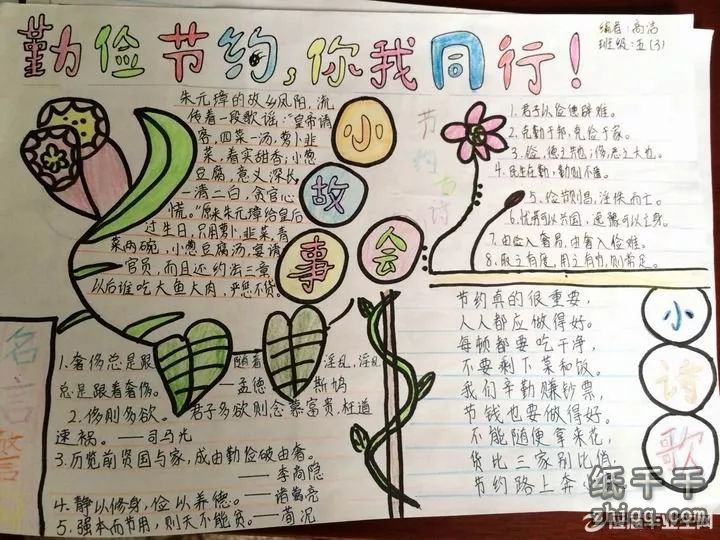 勤俭节约,你我同行!
编者:高洁
班级:五(3)
朱元璋的故乡凤阳,流
传着一段歌谣:“皇帝请
客,四菜一汤,萝卜韭
菜,着实甜香;小葱
豆腐,意义深长,
一清二白,贪官心
慌。”原来朱元璋给皇后
过生日,只用萝卜,韭菜,青
菜两碗,小葱豆腐汤,宴请
官员,而且还约法三章
以后谁吃大鱼大肉,严惩不贷。
小
故
事
会
节约古诗
1.君子以俭德辟难。
2.克勤于邦,克俭于家。
3.俭,德之共也;侈,恶之大也。
4.民生在勤,勤则不匮。
5.俭节则昌,淫佚而亡。
6.忧劳可以兴国,逸豫可以亡身。
7.由俭入奢易,由奢入俭难。
8.取之有度,用之有节,则常足。
名言警
1.奢侈总是跟随着淫乱,淫乱
总是跟着奢侈。——孟德斯鸠
2.侈则多欲。君子多欲则念慕富贵,枉道
速祸。——司马光
3.历览前贤国与家,成由勤俭破由奢。
——李商隐
4.静以修身,俭以养德。——诸葛亮
5.强本而节用,则天不能贫。——荀况
节约真的很重要,
人人都应做得好。
每顿都要吃干净,
不要剩下菜和饭。
我们辛勤赚钞票,
节钱也要做得好。
不能随便拿来花,
货比三家别比值,
节约路上奔小
小
诗
歌
纸千千
zhiqq.com